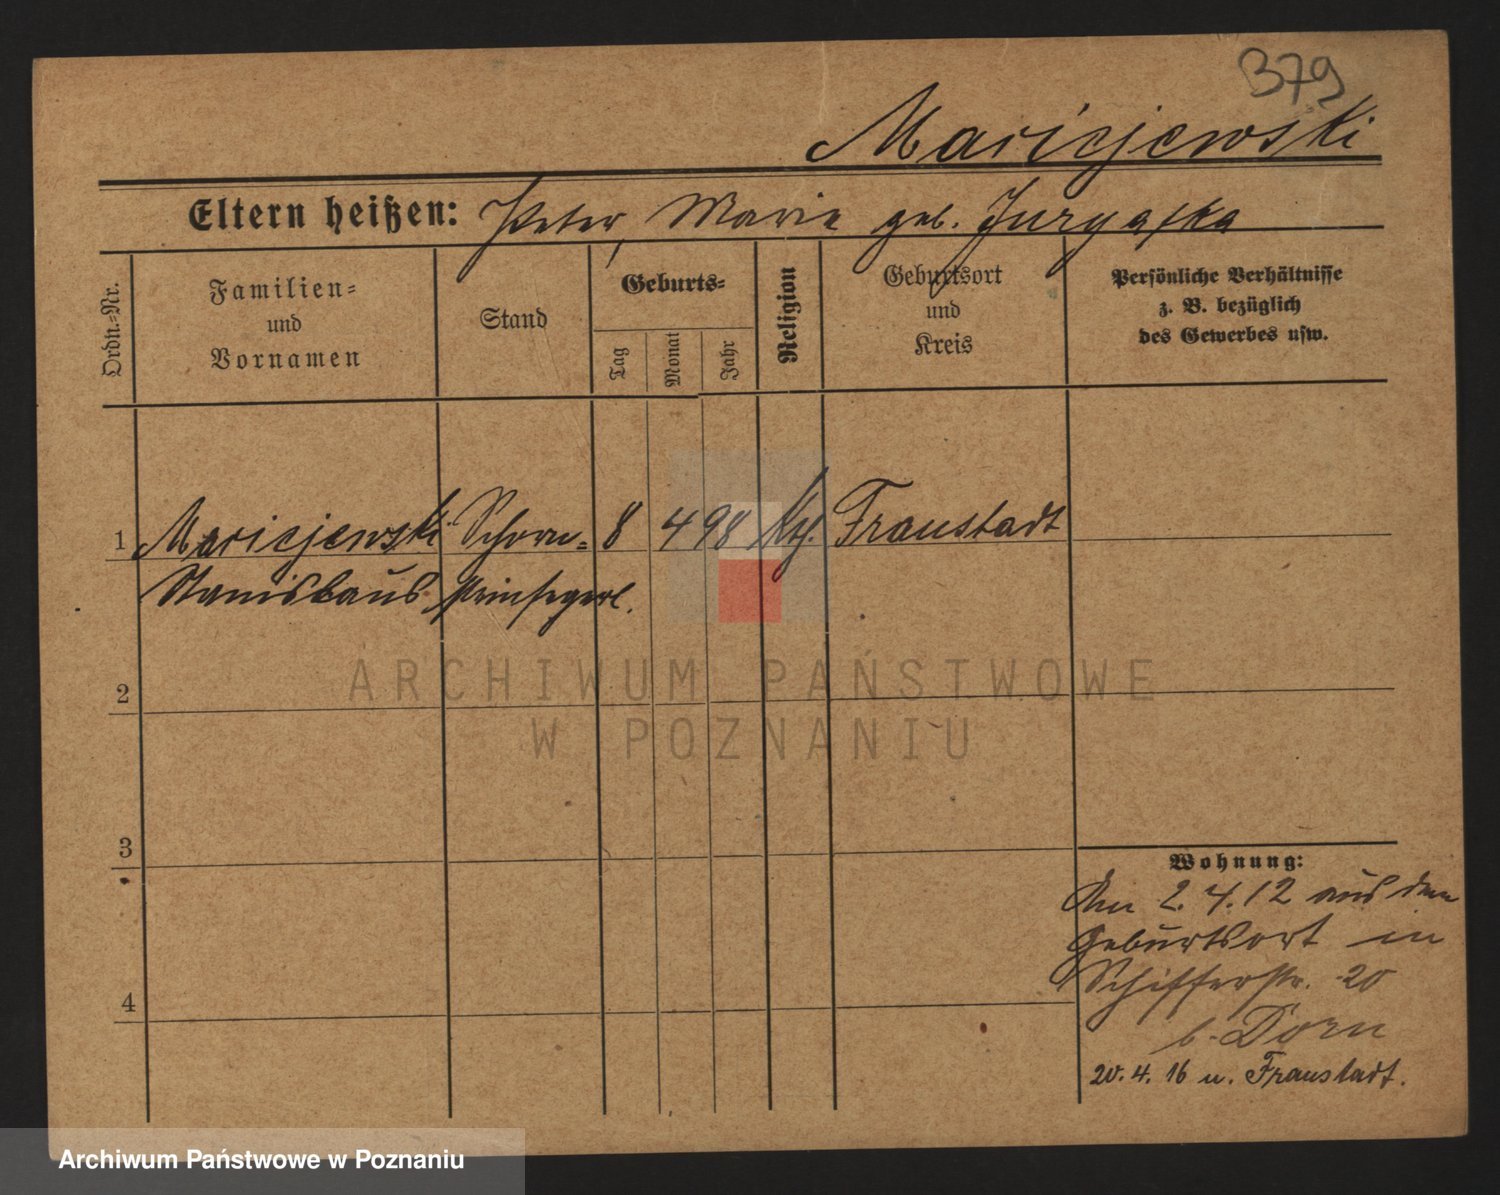 379
Maricjewski
Eltern heißen: Peter, Marie geb. Jurgaska
Ordn.-Nr.
Familien-
und
Vornamen
Stand
Geburts-
Tag
Monat
Jahr
Religion
Geburtsort
und
Kreis
Persönliche Verhältnisse
z. B. bezüglich
des Gewerbes usw.
1 Maricjewski Schorn- 8 4 98 Kth. Fraustadt
Stanislaus
2
3
4
Wohnung:
Am 2.4.12 aus dem
Geburtsort in
Schifferstr. 20
b. Dorn
20. 4. 16 n. Fraustadt.
ARCHIWUM PAŃSTWOWE
W POZNANIU
Archiwum Państwowe w Poznaniu